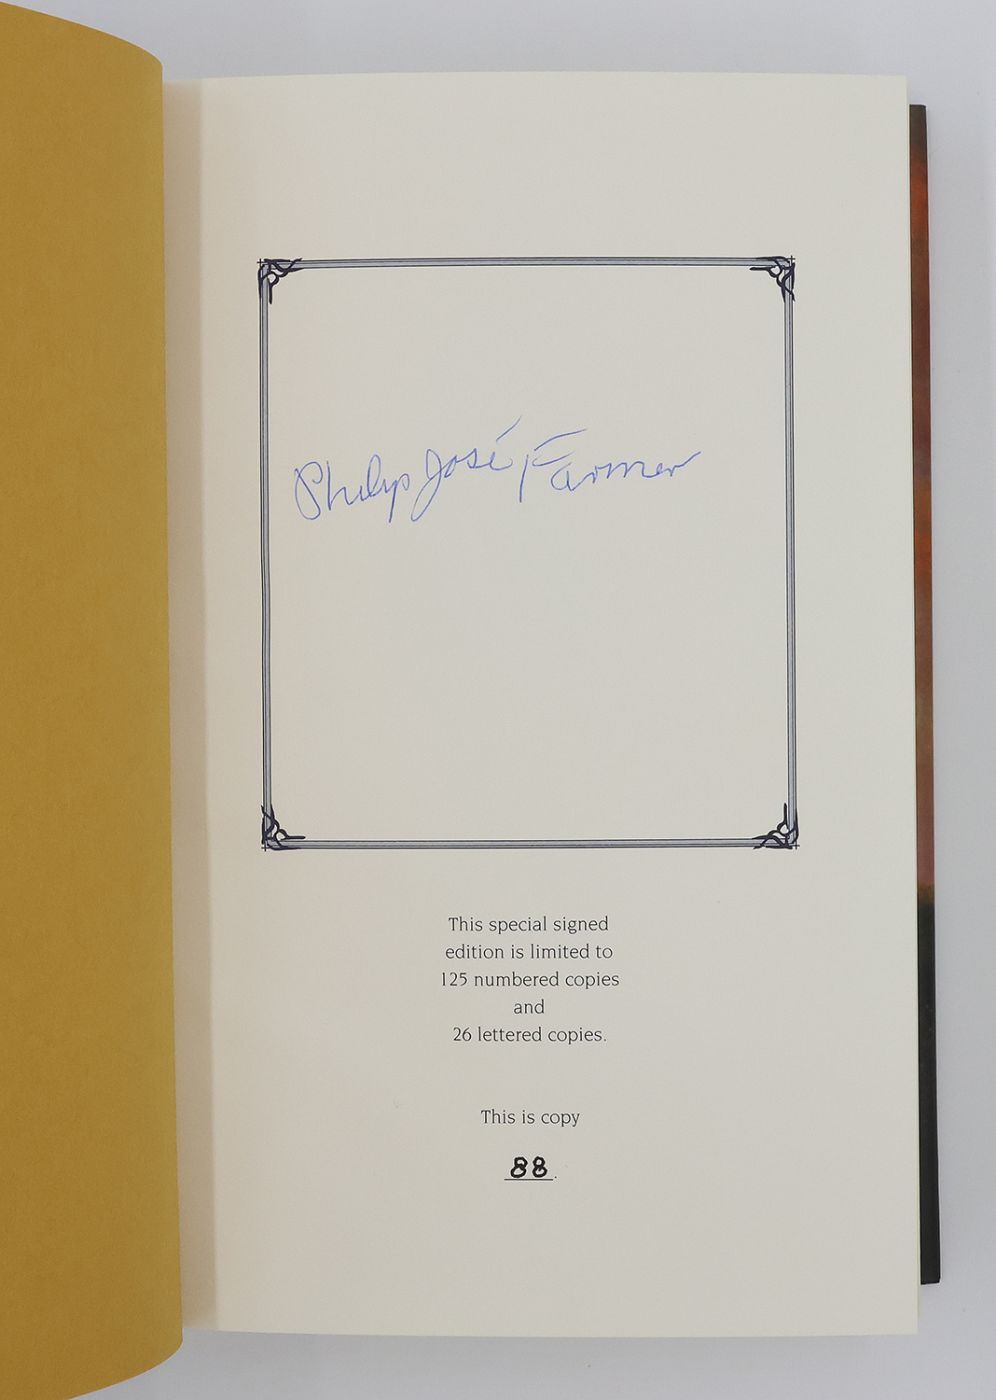 Philip José Farmer
This special signed
edition is limited to
125 numbered copies
and
26 lettered copies.
This is copy
88.